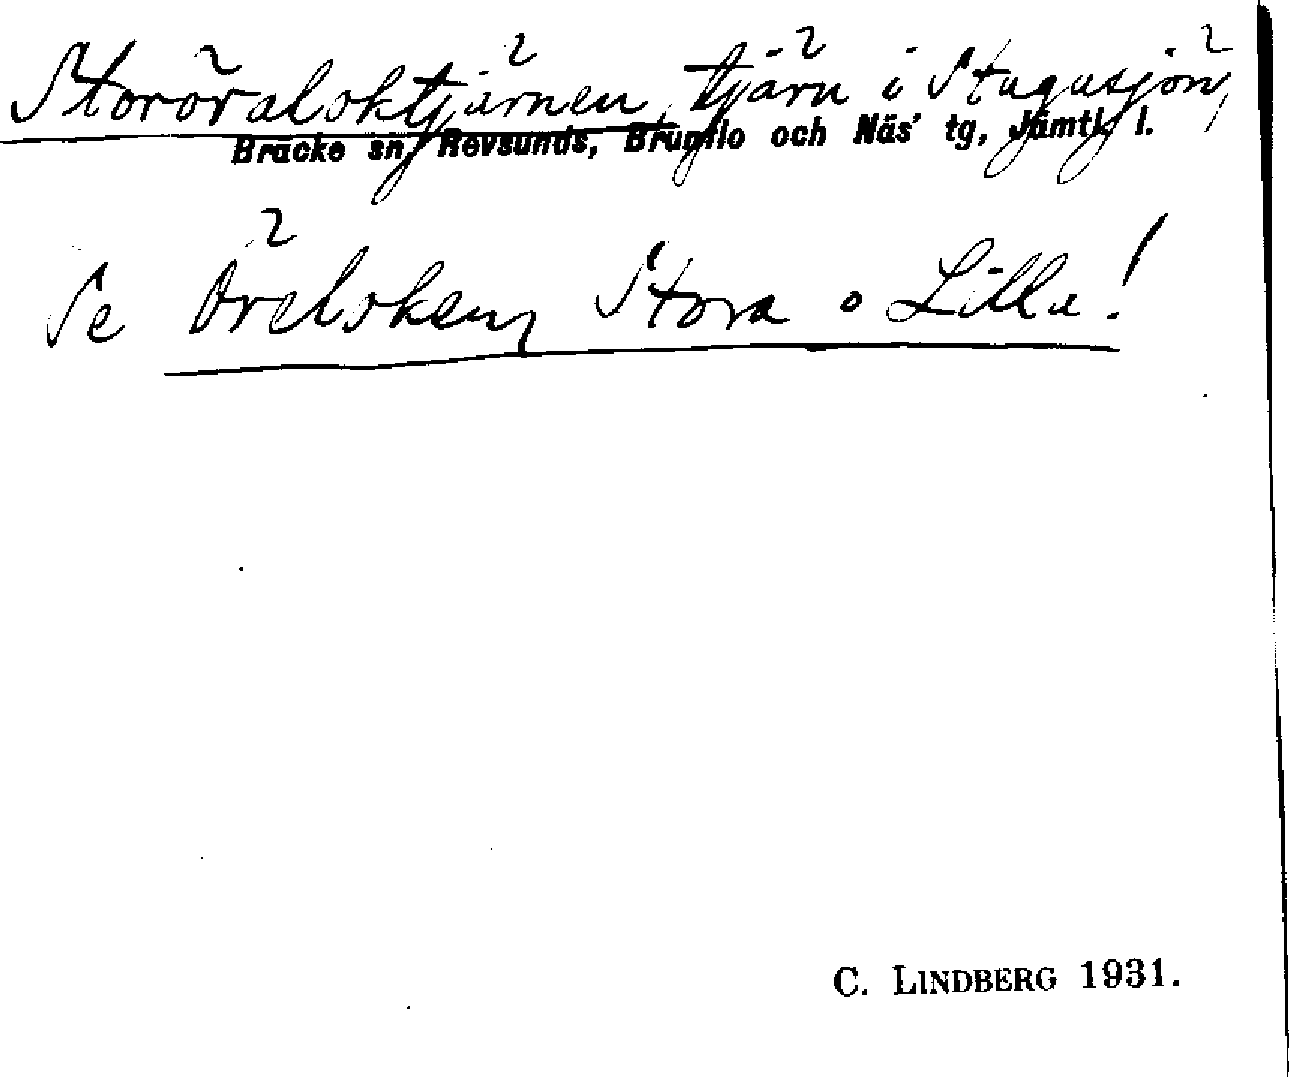 Storöraloktjärnen, tjärn i Stugusjön,
Bräcke sn, Revsunds, Brunflo och Näs' tg, Jämtl. l.
Se Öreloken, Stora o Lilla!
C. LINDBERG 1931.